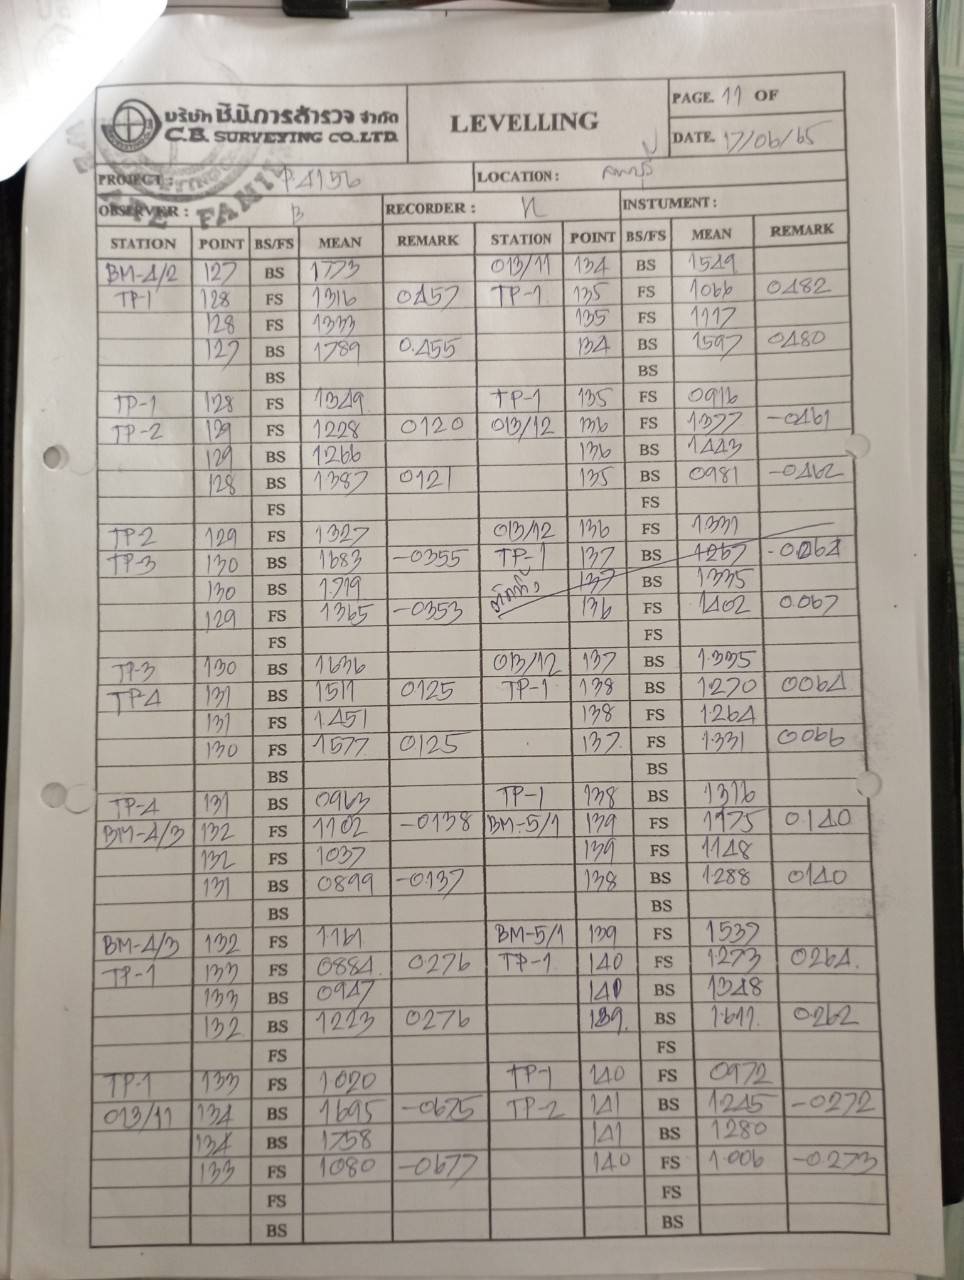 บริษัท ซี.บี.การสำรวจ จำกัด
C.B. SURVEYING CO.,LTD.
LEVELLING
PAGE. 11 OF
DATE. 17/06/65
PROJECT : P4156 LOCATION :
OBSERVER : B RECORDER : N INSTUMENT :
STATION POINT BS/FS MEAN REMARK STATION POINT BS/FS MEAN REMARK
BM-4/2 127 BS 1773 013/11 134 BS 1549
TP-1 128 FS 1316 0457 TP-1 135 FS 1066 0482
128 FS 1333 135 FS 1117
127 BS 1789 0.455 134 BS 1597 0480
BS BS
TP-1 128 FS 1349 TP-1 135 FS 0916
TP-2 129 FS 1228 0120 013/12 136 FS 1377 -0461
129 BS 1266 136 BS 1443
128 BS 1387 0121 135 BS 0981 -0462
FS FS
TP-2 129 FS 1327 013/12 136 FS 1331
TP-3 130 BS 1683 -0355 TP-1 137 BS 1267 -0064
130 BS 1.719 137 BS 1335
129 FS 1365 -0353 136 FS 1402 0.067
FS FS
TP-3 130 BS 1636 013/12 137 BS 1.335
TP-4 131 BS 1511 0125 TP-1 138 BS 1270 0064
131 FS 1.451 138 FS 1.264
130 FS 1577 0125 137 FS 1.331 0066
BS BS
TP-4 131 BS 0963 TP-1 138 BS 1316
BM-4/3 132 FS 1102 -0138 BM-5/1 139 FS 1175 0140
132 FS 1037 139 FS 1148
131 BS 0899 -0137 138 BS 1288 0140
BS BS
BM-4/3 132 FS 1161 BM-5/1 139 FS 1537
TP-1 133 FS 0884 0276 TP-1 140 FS 1.273 0264
133 BS 0947 140 BS 1348
132 BS 1223 0276 139 BS 1.611 0.262
FS FS
TP-1 133 FS 1020 TP-1 140 FS 0972
013/11 134 BS 1695 -0675 TP-2 141 BS 1245 -0272
134 BS 1758 141 BS 1280
133 FS 1080 -0677 140 FS 1.006 -0.273
FS FS
BS BS